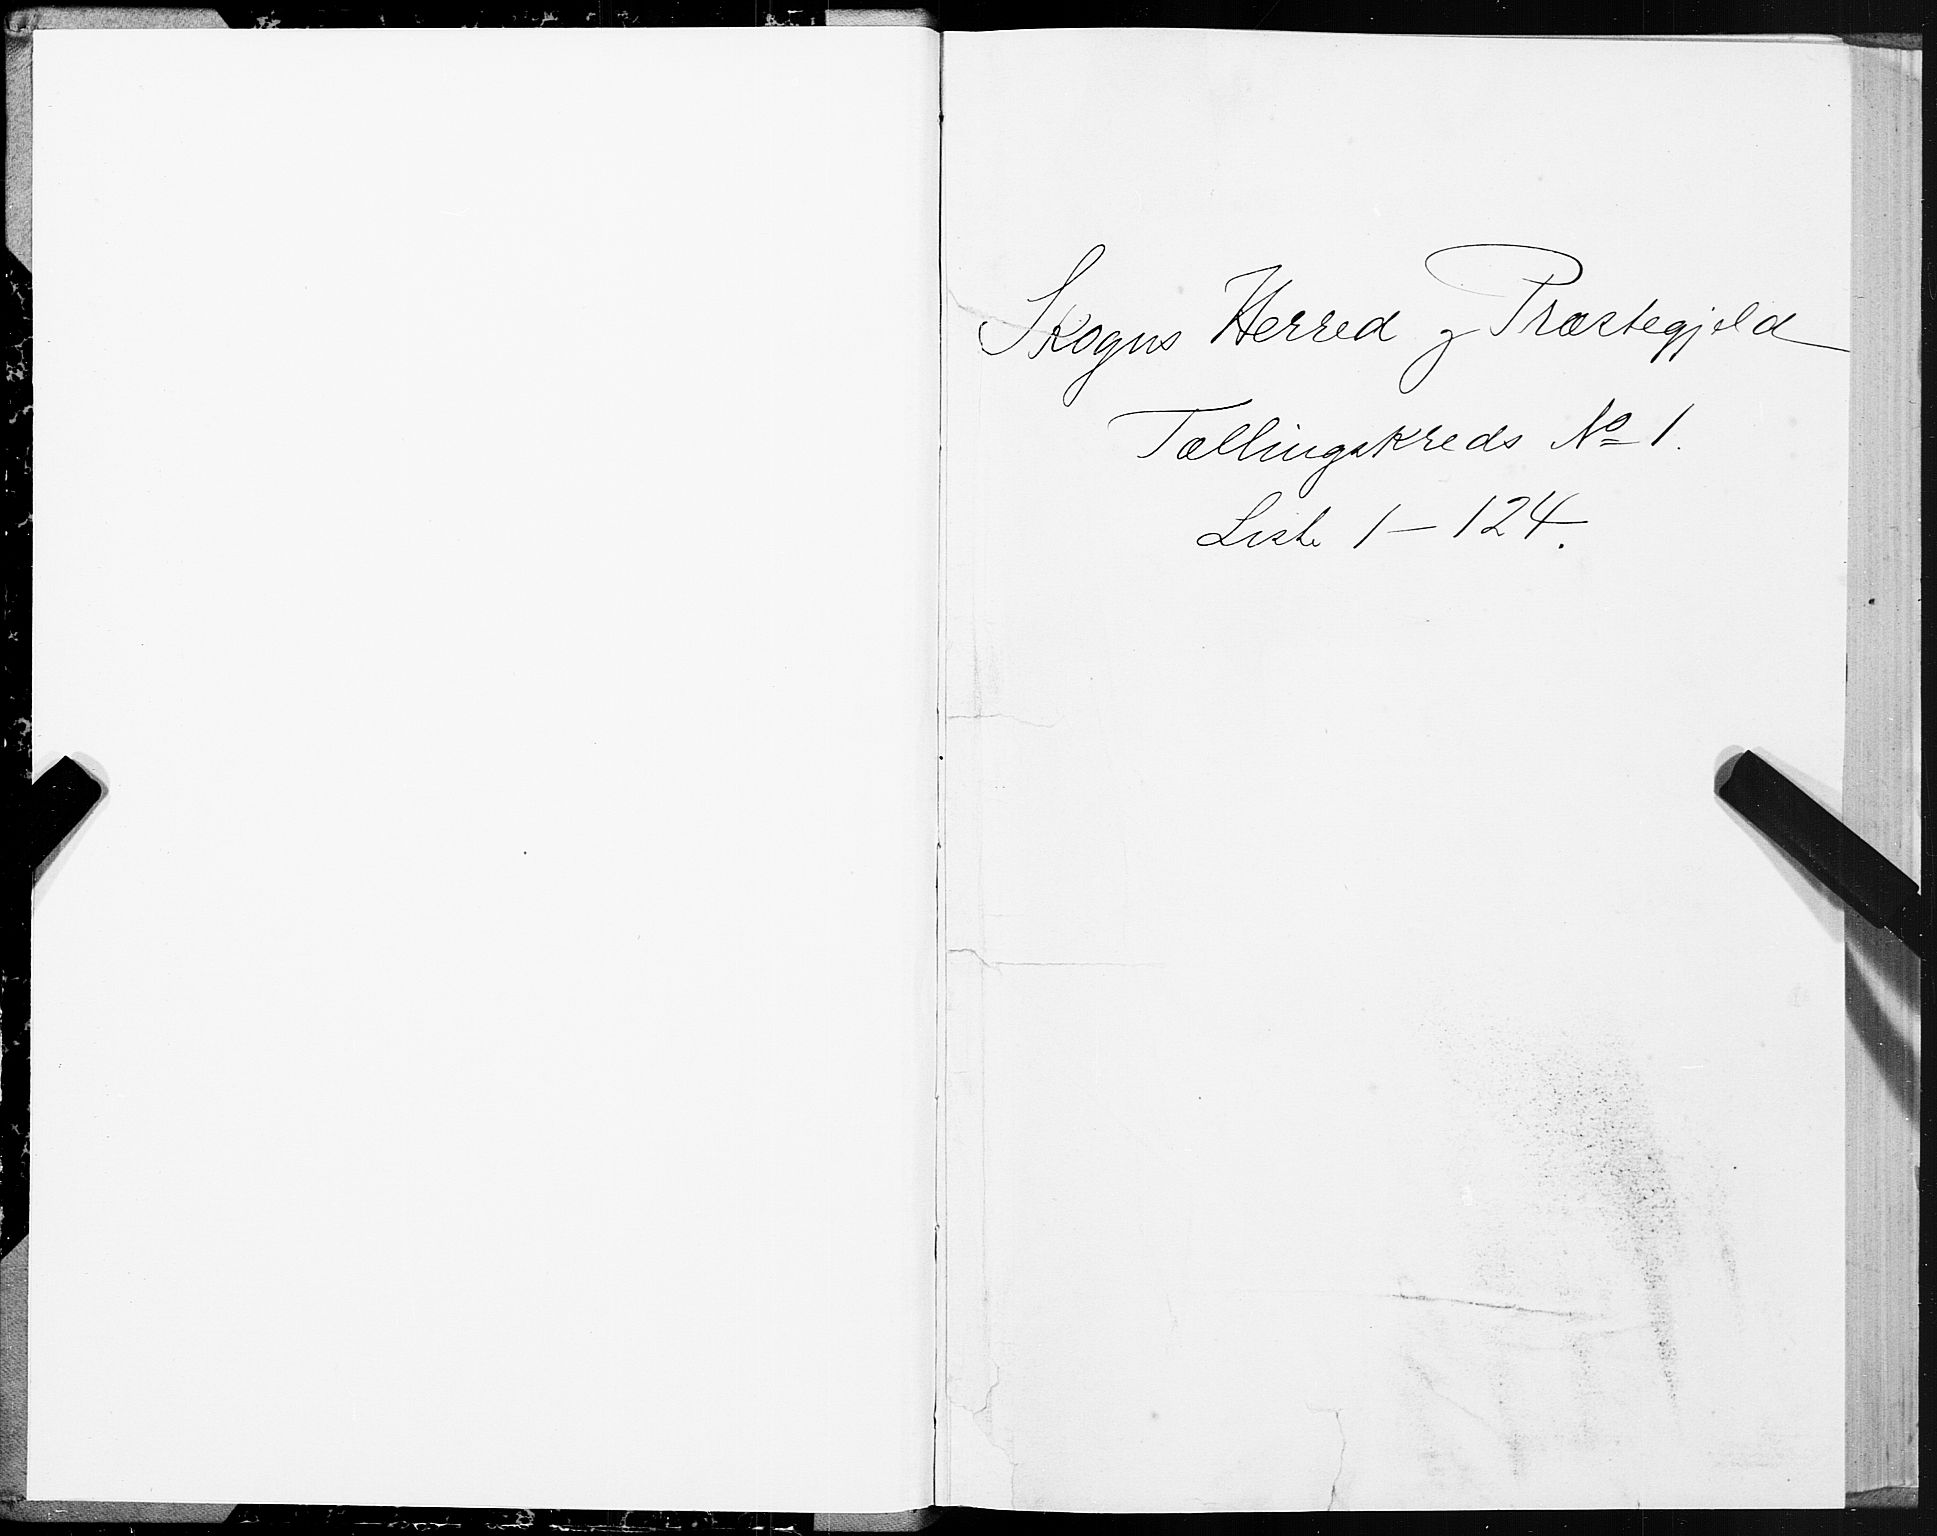 Skogns Herred og Præstegjeld
Tællingskreds No 1.
Liste 1 – 124.